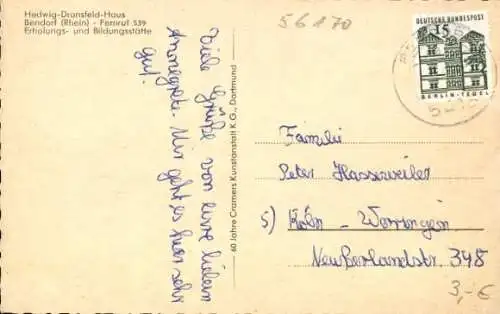 Hedwig-Dransfeld-Haus
Bendorf (Rhein) - Fernruf 539
Erholungs- und Bildungsstätte
Viele Grüße von eurer lieben
Annegrete. Mir geht es hier sehr
gut.
60 Jahre Cramers Kunstanstalt K.G., Dortmund
56170
DEUTSCHE BUNDESPOST
15
BERLIN-TEGEL
Familie
Peter Hasserweiler
5) Köln - Worringen
Neußerlandstr. 348
3,- €